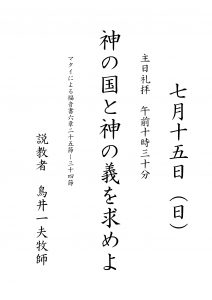 七月十五日（日）
主日礼拝　午前十時三十分
神の国と神の義を求めよ
マタイによる福音書六章二十五節ー三十四節
説教者　鳥井一夫牧師